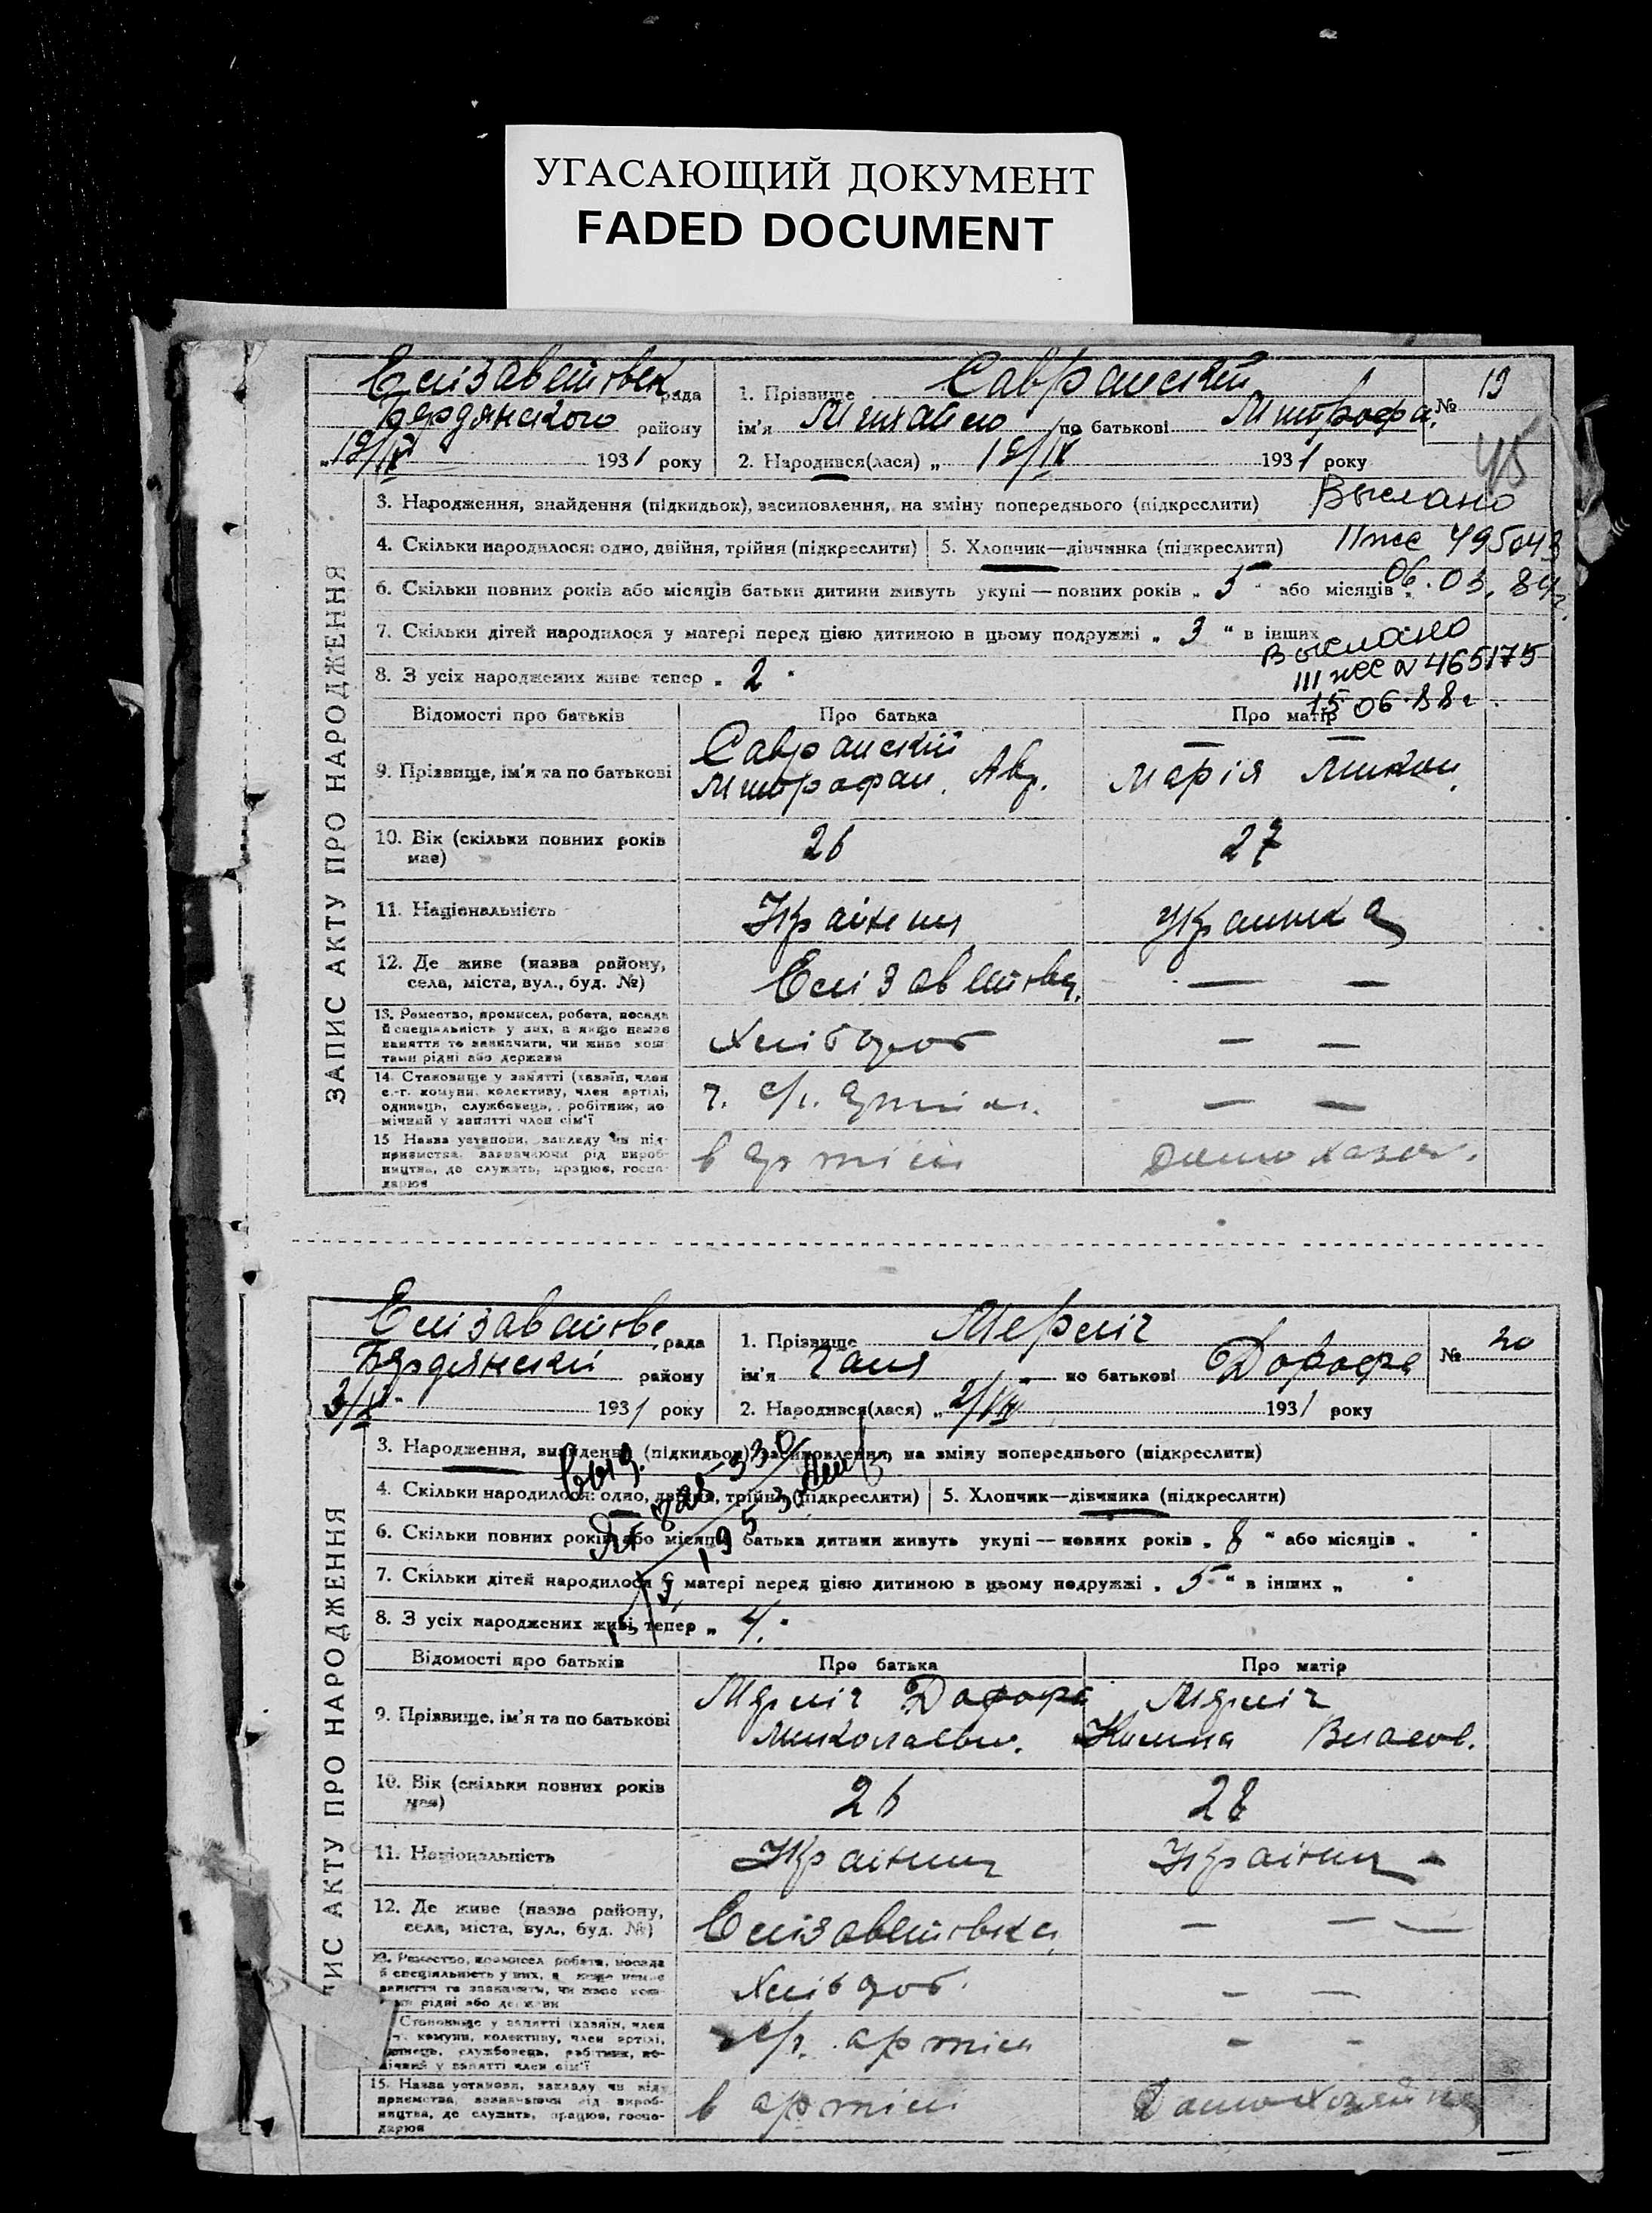 УГАСАЮЩИЙ ДОКУМЕНТ
FADED DOCUMENT
ЗАПИС АКТУ ПРО НАРОДЖЕННЯ
Єлізаветівськ рада
Бердянського району
"19/IX 1931 року
1. Прізвище Савранский
ім'я Михайло по батькові Митрофа.
№ 19
45
2. Народився(лася) „ 18/IX 1931 року
3. Народження, знайдення (підкидьок), засиновлення, на зміну попереднього (підкреслити)
Выслано
4. Скільки народилося: одно, двійня, трійня (підкреслити) 5. Хлопчик—дівчинка (підкреслити)
II жс 495043
06.03.84г
6. Скільки повних років або місяців батьки дитини живуть укупі — повних років „ 5 " або місяців „
7. Скільки дітей народилося у матері перед цією дитиною в цьому подружжі „ 3 " в інших
Выслано
III жс N 465175
15 06.88г.
8. З усіх народжених живе тепер „ 2 "
Відомості про батьків Про батька Про матір
9. Прізвище, ім'я та по батькові Савранский Митрофан. Ав. — — Марія Микол.
10. Вік (скільки повних років має) 26 27
11. Національність Україниц Украинка
12. Де живе (назва району, села, міста, вул., буд. №) Єлізаветівка. — —
13. Ремество, промисел, робота, посада й спеціальність у них, а якщо немає заняття то зазначити, чи живе кош- тами рідні або держави Хлібороб — —
14. Становище у занятті (хазяїн, член с.-г. комуни, колективу, член артілі, одинець, службовець, робітник, по- мічний у занятті член сім'ї ч. с/г. артіли. — —
15 Назва установи, закладу чи під- приємства, зазначаючи рід вироб- ництва, де служить, працює, госпо- дарює в артілі Домохазяй.
ЗАПИС АКТУ ПРО НАРОДЖЕННЯ
Єлізаветівс рада
Бердянский району
3/X 1931 року
1. Прізвище Мерліч
ім'я Галя по батькові Дорофе
№ 20
2. Народився(лася) „ 2/VIII 1931 року
3. Народження, знайдення (підкидьок), засиновлення, на зміну попереднього (підкреслити)
Выд.
4. Скільки народилося: одно, двійня, трійня (підкреслити) 5. Хлопчик—дівчинка (підкреслити)
6. Скільки повних років або місяців батьки дитини живуть укупі — повних років „ 8 " або місяців „ "
7. Скільки дітей народилося у матері перед цією дитиною в цьому подружжі „ 5 " в інших „ "
8. З усіх народжених живі, тепер „ 4. "
Відомості про батьків Про батька Про матір
9. Прізвище, ім'я та по батькові Мерліч Дорофе Миколаєвич. Мерліч Власов.
10. Вік (скільки повних років має) 26 28
11. Національність Україниц Україниц —
12. Де живе (назва району, села, міста, вул., буд. №) Єлізаветівка — — —
13. Ремество, промисел робота, посада й спеціальність у них, а якщо немає заняття то зазначити, чи живе кош- тами рідні або держави Хлібороб. — —
Становище у занятті (хазяїн, член комуни, колективу, член артілі, одинець, службовець, робітник, по- мічний у занятті член сім'ї с/г. артіли - -
15. Назва установи, закладу чи під- приємства, зазначаючи рід вироб- ництва, де служить, працює, госпо- дарює в артілі Домохозяйка